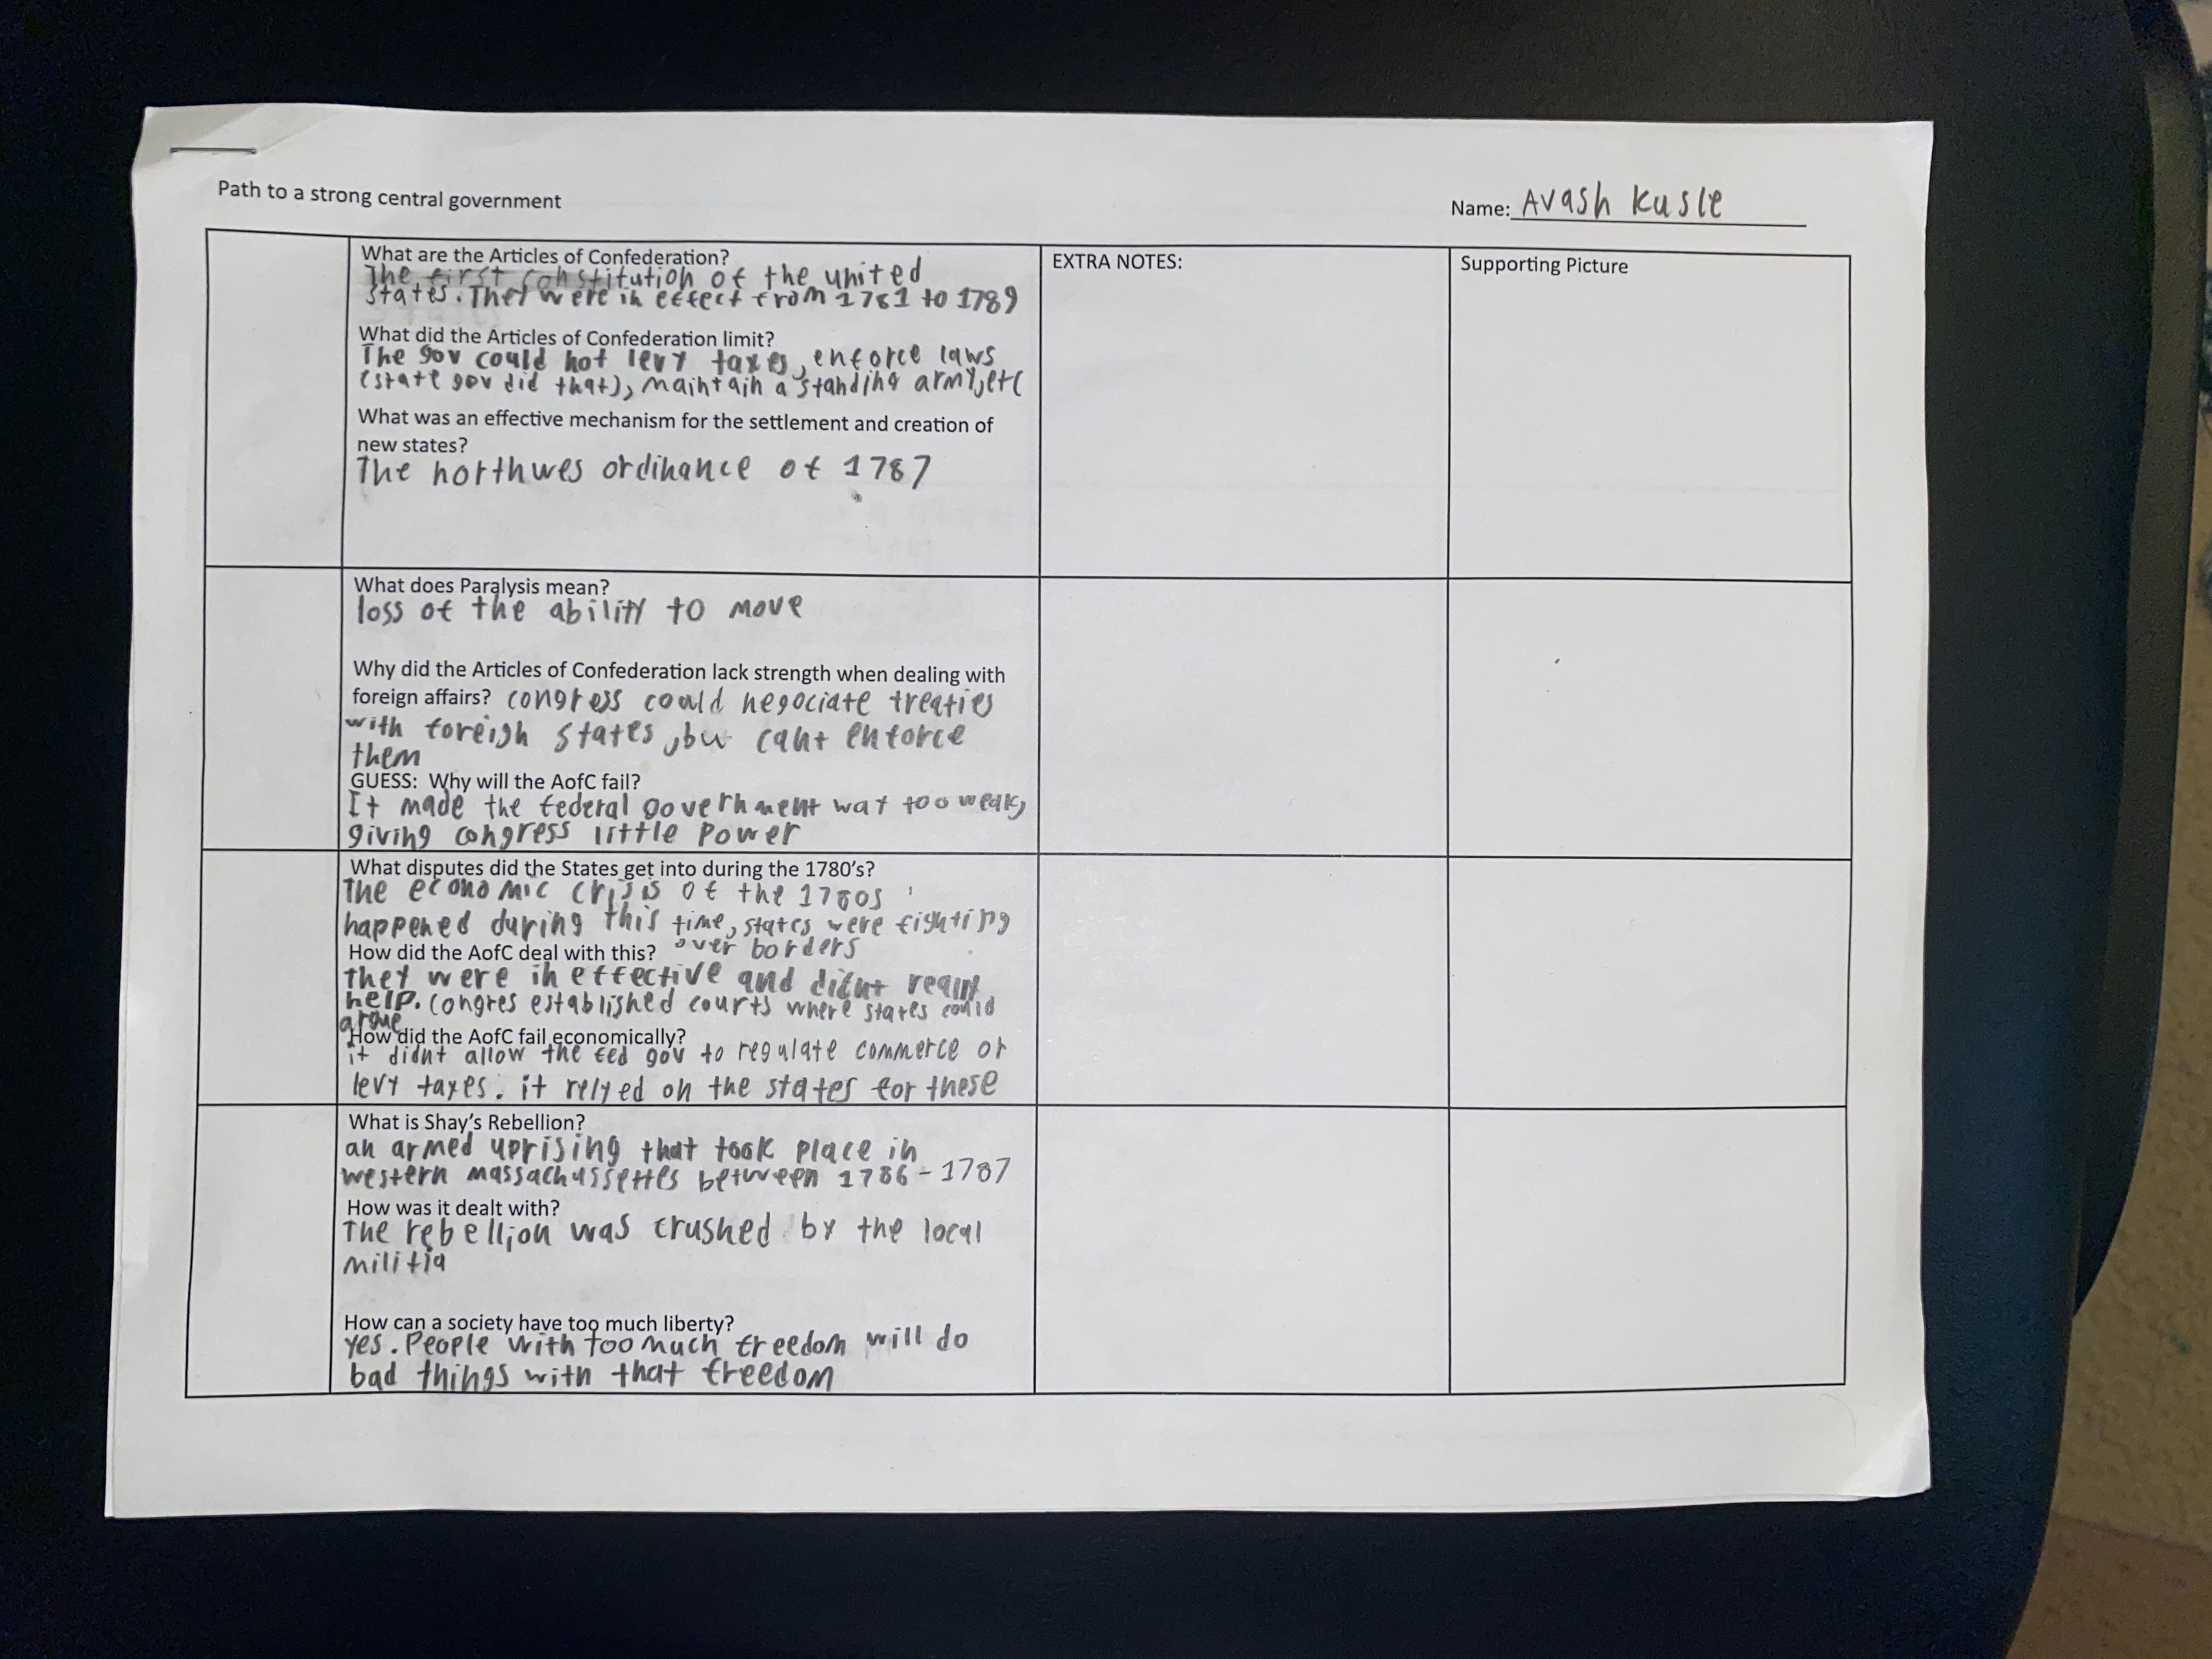 Path to a strong central government
Name: Avash Kusle
What are the Articles of Confederation?
The first constitution of the united
states. They were in effect from 1781 to 1789
What did the Articles of Confederation limit?
The gov could not levy taxes, enforce laws
(state gov did that), maintain a standing army, etc
What was an effective mechanism for the settlement and creation of
new states?
The northwes ordinance of 1787
EXTRA NOTES:
Supporting Picture
What does Paralysis mean?
loss of the ability to move
Why did the Articles of Confederation lack strength when dealing with
foreign affairs? congress could negociate treaties
with foreign states, bu cant enforce
them
GUESS: Why will the AofC fail?
It made the federal government way too weak,
giving congress little power
What disputes did the States get into during the 1780's?
The economic crisis of the 1780s
happened during this time, states were fighting
over borders
How did the AofC deal with this?
they were in effective and didnt
help. Congres established courts where states could
argue
How did the AofC fail economically?
it didnt allow the fed gov to regulate commerce or
levy taxes. it relyed on the states for these
What is Shay's Rebellion?
an armed uprising that took place in
western massachussettes between 1786-1787
How was it dealt with?
The rebellion was crushed by the local
militia
How can a society have too much liberty?
yes. People with too much freedom will do
bad things with that freedom